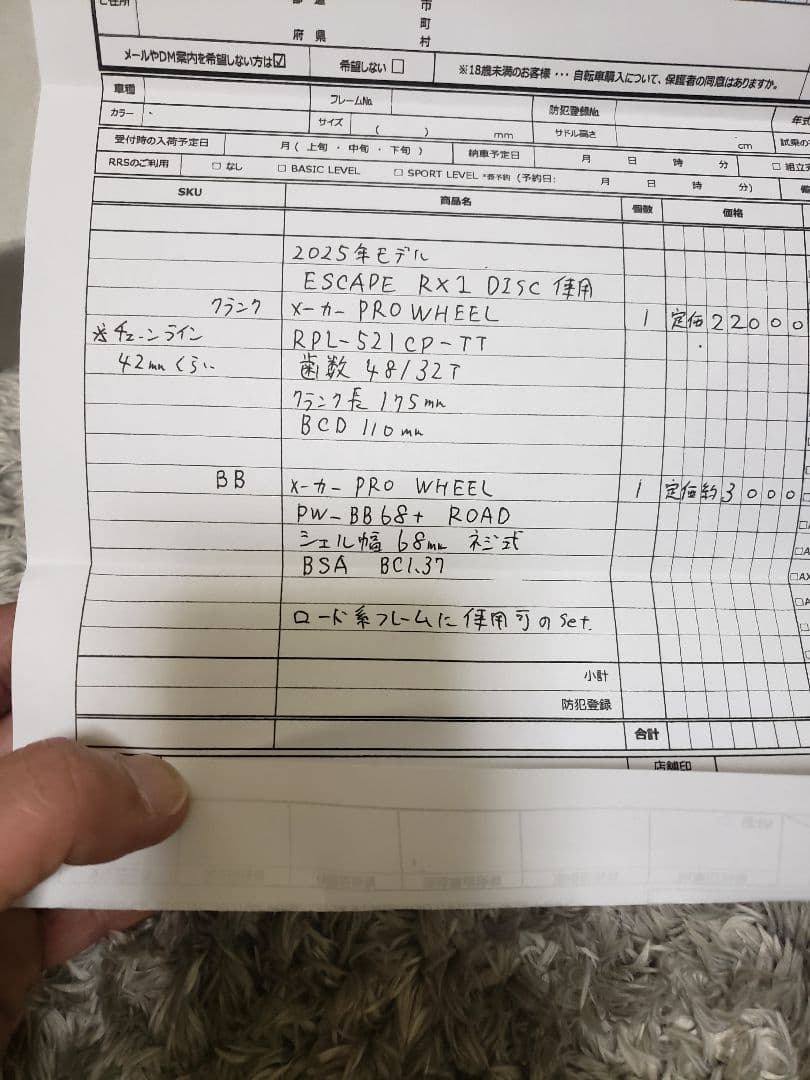 ご住所
市
町
府 県 村
メールやDM案内を希望しない方は☑ 希望しない □ ※18歳未満のお客様・・・自転車購入について、保護者の同意はありますか。
車種 フレームNo. 防犯登録No. 年式
カラー サイズ ( ) mm サドル高さ cm
受付時の入荷予定日 月 ( 上旬 ・ 中旬 ・ 下旬 ) 納車予定日 月 日 時 分
RRSのご利用 □ なし □ BASIC LEVEL □ SPORT LEVEL *要予約 (予約日: 月 日 時 分)
SKU 商品名 個数 価格
2025年モデル
ESCAPE RX1 DISC 使用
クランク メーカー PRO WHEEL 1 定価22000
※チェーンライン RPL-521CP-TT
42mmくらい 歯数 48/32T
クランク長 175mm
BCD 110mm
BB メーカー PRO WHEEL 1 定価約3000
PW-BB68+ ROAD
シェル幅 68mm ネジ式
BSA BC1.37
ロード系フレームに使用可のset.
小計
防犯登録
合計
店舗印